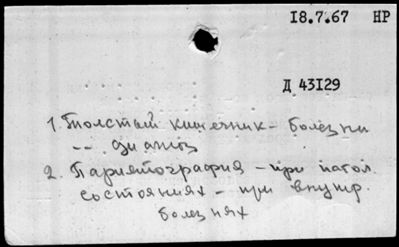 18.7.67 НР
Д 43129
1. Толстый кишечник - болезни
-- диагноз
2. Париетография - при патол.
состояниях - при внутр.
болезнях